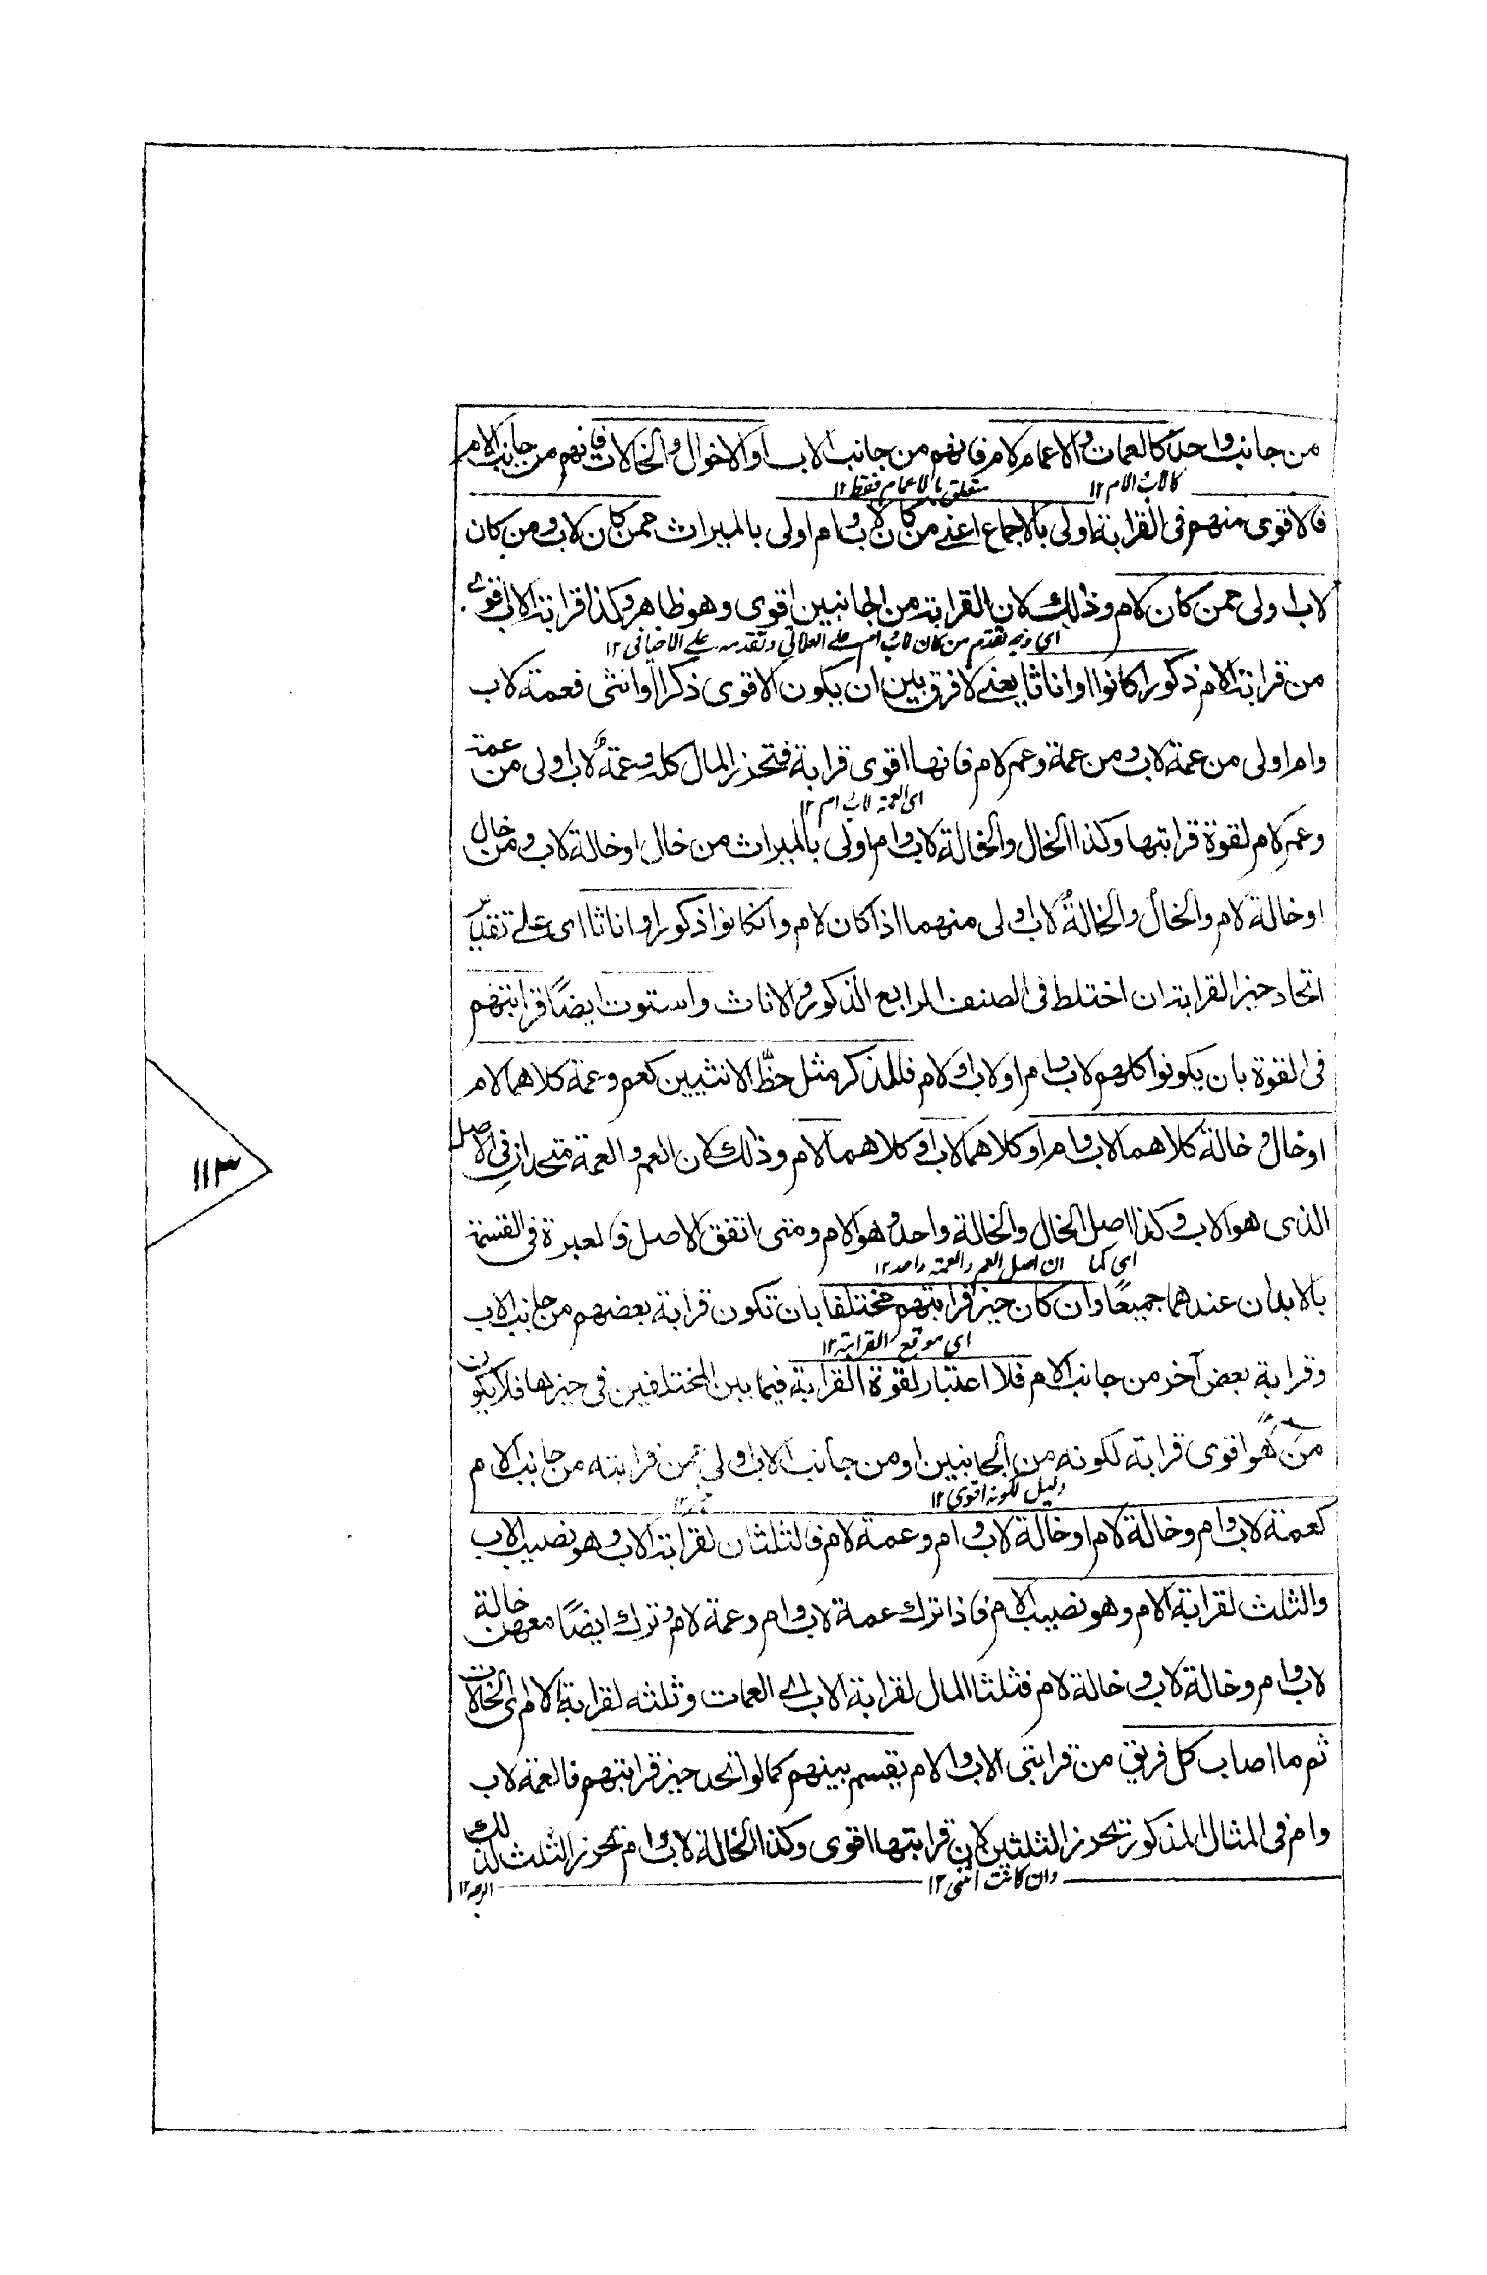 من جانب واحد كالعمات والاعمام لام فانهم من جانب الاب او الاخوال والخالات فانهم من جانب الام
كالاب الام ١٢ متعلق بالاعمام فقط ١٢
فالاقوى منهم فى القرابة اولى بالاجماع اعنے من كان لاب وام اولى بالميراث ممن كان لاب ومن كان
لاب اولى ممن كان لام وذلك لان القرابة من الجانبين اقوى وهو ظاهر وكذا قرابة الاب اقوى
اى وجه تقدم من كان لاب ام علے العلاتي وتقدمه علے الاخيافى ١٢
من قرابة الام ذكورا كانوا او اناثا يعنے لا فرق بين ان يكون الاقوى ذكرا او انثى فعمة لاب
وام اولى من عمة لاب ومن عمة وعم لام فانها اقوى قرابة فتحذر المال كله وعمة لاب اولى من عمة
اى العمة لاب ام ١٢
وعم لام لقوة قرابتها وكذا الخال والخالة لاب وام اولى بالميراث من خال او خالة لاب ومن خال
او خالة لام والخال والخالة لاب اولى منهما اذا كان لام وانكانوا ذكورا واناثا اى على تقدير
اتحاد حيز القرابة ان اختلط فى الصنف الرابع الذكور والاناث واستوت ايضًا قرابتهم
فى القوة بان يكونوا كلهم لاب وام او لاب او لام فللذكر مثل حظّ الانثيين كعم وعمة كلاهما لام
او خال وخالة كلاهما لاب وام او كلاهما لاب او كلاهما لام وذلك لان العم والعمة متحدان فى الاصل
الذى هو الاب وكذا اصل الخال والخالة واحد وهو الام ومتى اتفق الاصل فالعبرة فى القسمة
اى كما ان اصل العم والعمة واحد ١٢
بالابدان عندهما جميعًا وان كان حيز قرابتهم مختلفا بان تكون قرابة بعضهم من جانب الاب
اى موقع القرابة ١٢
وقرابة بعض آخر من جانب الام فلا اعتبار لقوة القرابة فيما بين المختلفين فى حيزها فلا يكون
من هو اقوى قرابة لكونه من الجانبين او من جانب الاب اولى ممن قرابته من جانب الام
دليل لكونه اقوى ١٢
كعمة لاب وام وخالة لام او خالة لاب وام وعمة لام فالثلثان لقرابة الاب وهو نصيب الاب
والثلث لقرابة الام وهو نصيب الام فاذا ترك عمة لاب وام وعمة لام وترك ايضًا معهن خالة
لاب وام وخالة لاب وخالة لام فثلثا المال لقرابة الاب اى العمات وثلثه لقرابة الام اى الخالات
ثم ما اصاب كل فريق من قرابتى الاب والام يقسم بينهم كما لو اتحد حيز قرابتهم فالعمة لاب
وام فى المثال المذكور تحوز الثلثين لان قرابتها اقوى وكذا الخالة لاب وام تحوز الثلث لذلك
وان كانت انثى ١٢ الوجه ١٢
١١٣